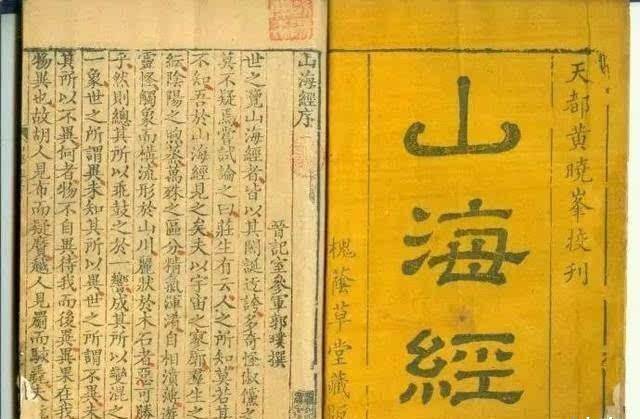 天都黄曉峯挍刊
山海經
槐蔭草堂藏版
山海經序
晉記室參軍郭璞撰
世之覽山海經者皆以其閎誕迂誇多奇怪俶儻之
莫不疑焉嘗試論之曰莊生有云人之所知莫若其
不知吾於山海經見之矣夫以宇宙之寥廓羣生之
紜陰陽之煦蒸萬殊之區分精氣渾淆自相濆薄遊
靈怪觸象而構流形於山川麗狀於木石者惡可勝
乎然則總其所以乖鼓之於一響成其所以變混之
一象世之所謂異未知其所以異世之所謂不異未
其所以不異何者物不自異待我而後異異果在我
物異也故胡人見布而疑黂越人見罽而駭毳夫